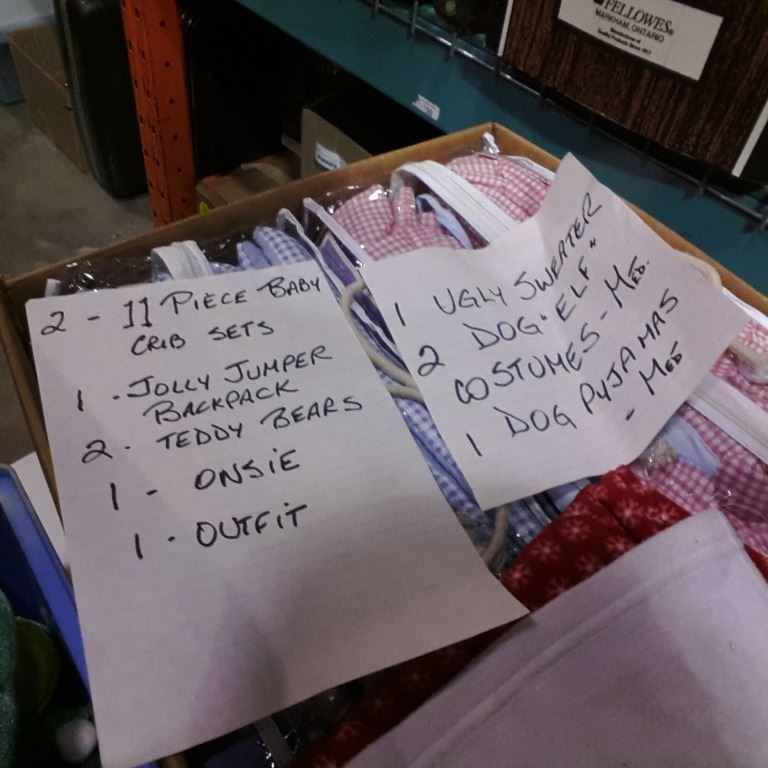 FELLOWES®
MARKHAM, ONTARIO
2 - 11 PIECE BABY
CRIB SETS
1 - JOLLY JUMPER
BACKPACK
2 - TEDDY BEARS
1 - ONSIE
1 - OUTFIT
1 UGLY SWEATER
2 DOG "ELF"
COSTUMES - MED.
1 DOG PYJAMAS
- MED